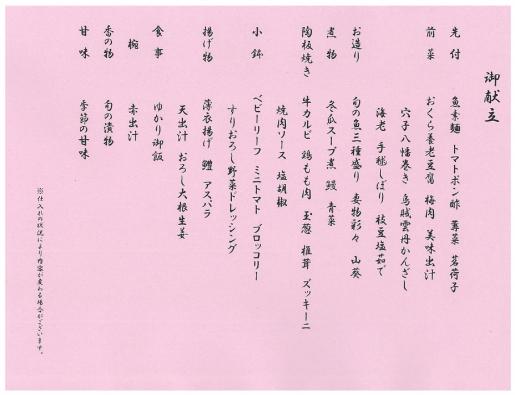 御献立
先付 魚素麺 トマトポン酢 蓴菜 茗荷子
前菜 おくら養老豆腐 梅肉 美味出汁
穴子八幡巻き 烏賊雲丹かんざし
海老 手毬しぼり 枝豆塩茹で
お造り 旬の魚三種盛り 妻物彩々 山葵
煮物 冬瓜スープ煮 鰻 青菜
陶板焼き 牛カルビ 鶏もも肉 玉葱 椎茸 ズッキーニ
焼肉ソース 塩胡椒
小鉢 ベビーリーフ ミニトマト ブロッコリー
すりおろし野菜ドレッシング
揚げ物 薄衣揚げ 鱧 アスパラ
天出汁 おろし大根生姜
食事 ゆかり御飯
椀 赤出汁
香の物 旬の漬物
甘味 季節の甘味
※仕入れの状況により内容が変わる場合がございます。